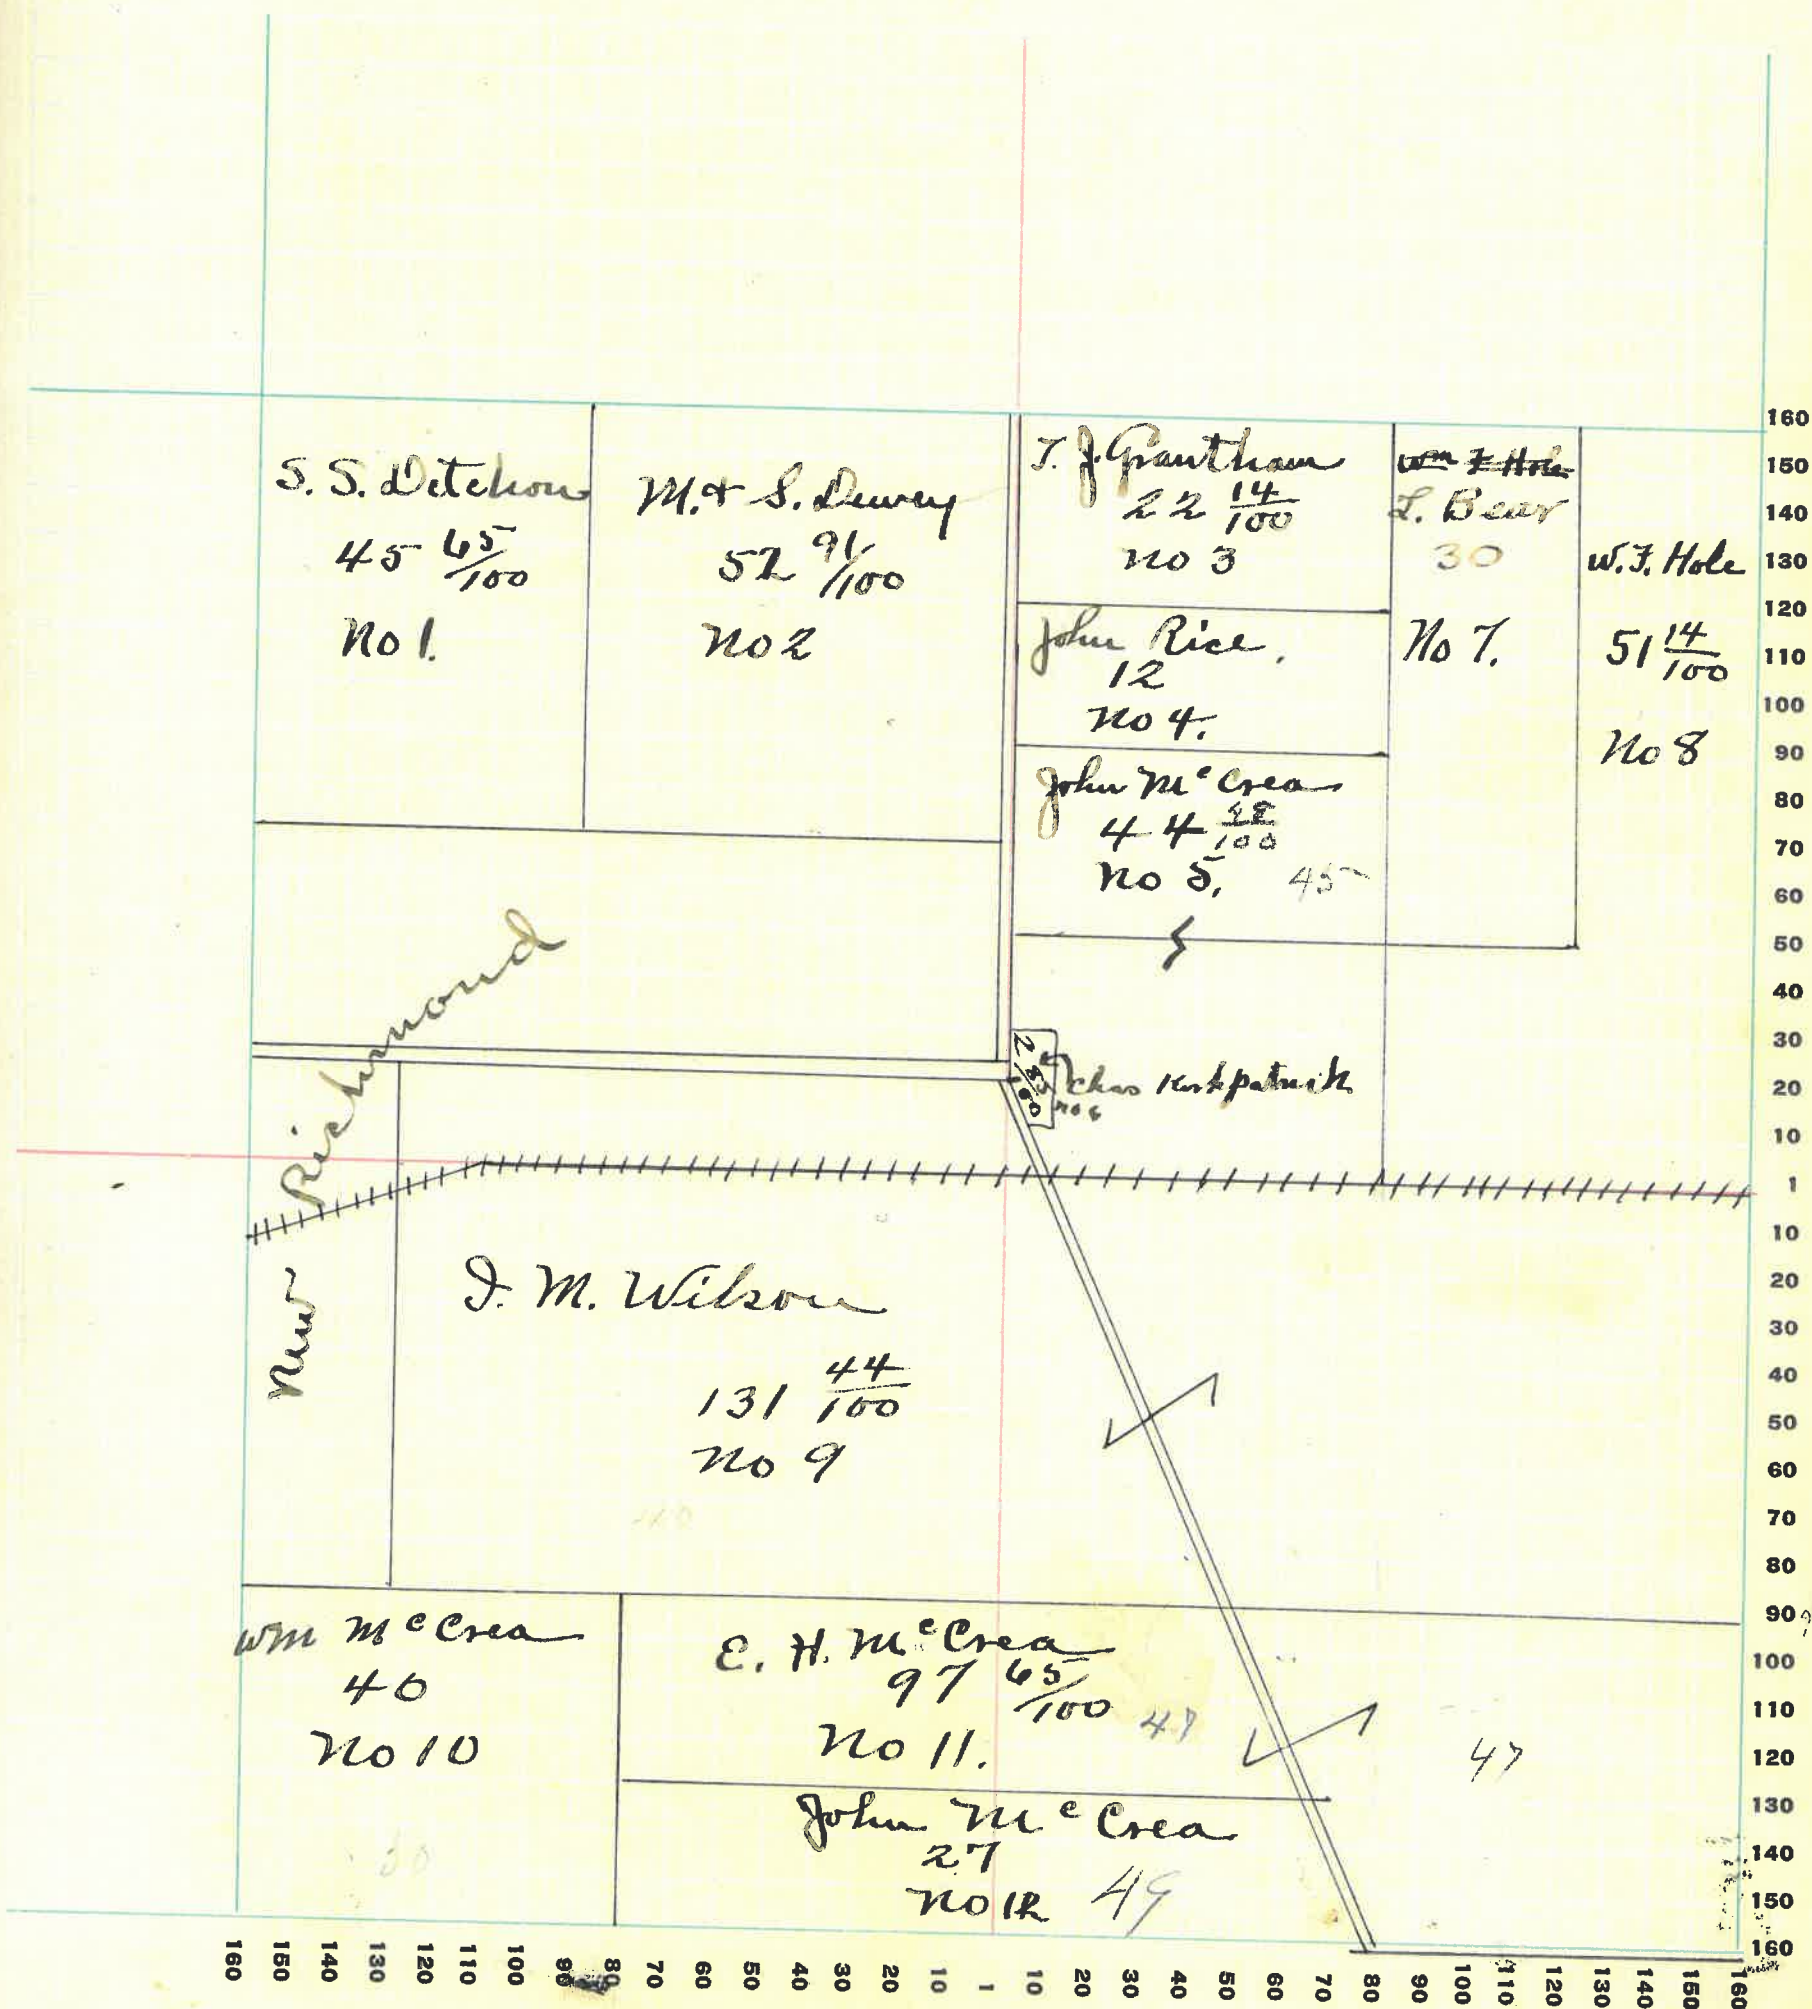 S. S. Detchon
45 65/100
No 1.
M. & S. Dewey
52 91/100
No 2
T. J. Grantham
22 14/100
no 3
Wm F Hole
L. Bear
30
No 7.
W. F. Hole
51 14/100
No 8
John Rice.
12
no 4.
John McCrea
44 /100
no 5. 45
Chas Kirkpatrick
no 6
New Richmond
I. M. Wilson
131 44/100
no 9
Wm McCrea
40
No 10
E. H. McCrea
97 65/100
No 11. 47
47
John McCrea
27
No 12 49
160
150
140
130
120
110
100
90
80
70
60
50
40
30
20
10
1
10
20
30
40
50
60
70
80
90
100
110
120
130
140
150
160
160 150 140 130 120 110 100 90 80 70 60 50 40 30 20 10 1 10 20 30 40 50 60 70 80 90 100 110 120 130 140 150 160